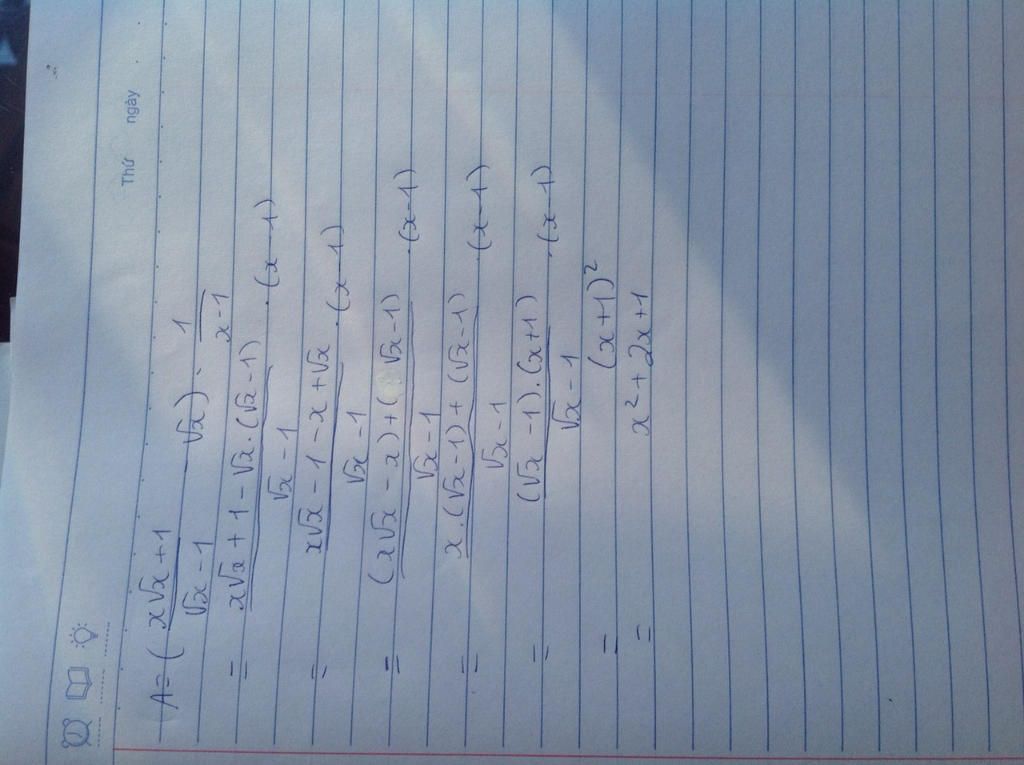 Thứ ngày
A = ( x√x + 1 / √x - 1 - √x ) : 1 / x - 1
= x√x + 1 - √x . (√x - 1) / √x - 1 . (x - 1)
= x√x - 1 - x + √x / √x - 1 . (x - 1)
= (x√x - x) + (√x - 1) / √x - 1 . (x - 1)
= x . (√x - 1) + (√x - 1) / √x - 1 . (x - 1)
= (√x - 1) . (x + 1) / √x - 1 . (x - 1)
= (x + 1)²
= x² + 2x + 1